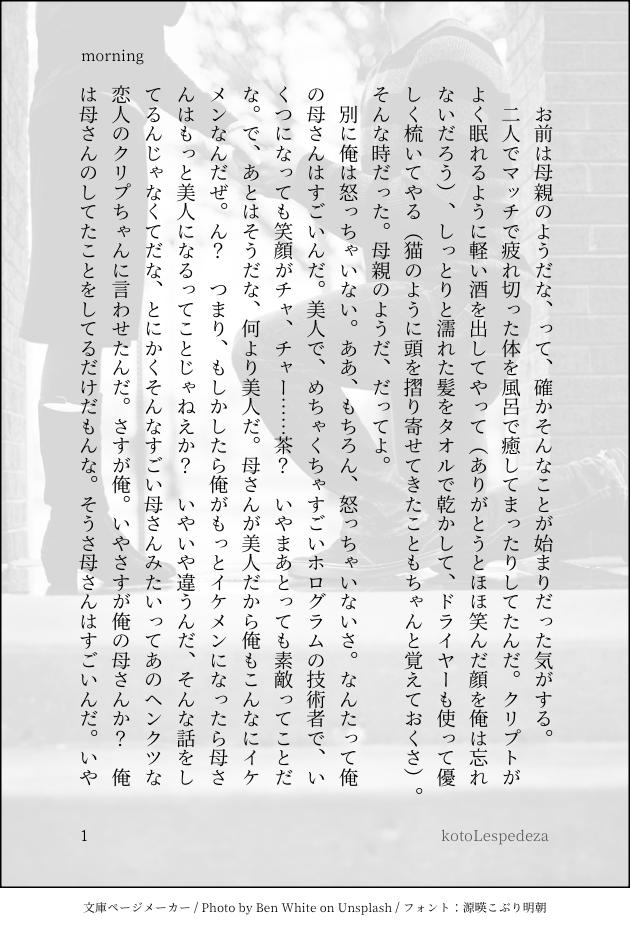 morning
お前は母親のようだな、って、確かそんなことが始まりだった気がする。
二人でマッチで疲れ切った体を風呂で癒してまったりしてたんだ。クリプトが
よく眠れるように軽い酒を出してやって（ありがとうとほほ笑んだ顔を俺は忘れ
ないだろう）、しっとりと濡れた髪をタオルで乾かして、ドライヤーも使って優
しく梳いてやる（猫のように頭を摺り寄せてきたこともちゃんと覚えておくさ）。
そんな時だった。母親のようだ、だってよ。
別に俺は怒っちゃいない。ああ、もちろん、怒っちゃいないさ。なんたって俺
の母さんはすごいんだ。美人で、めちゃくちゃすごいホログラムの技術者で、い
くつになっても笑顔がチャ、チャー……茶？　いやまあとっても素敵ってことだ
な。で、あとはそうだな、何より美人だ。母さんが美人だから俺もこんなにイケ
メンなんだぜ。ん？　つまり、もしかしたら俺がもっとイケメンになったら母さ
んはもっと美人になるってことじゃねえか？　いやいや違うんだ、そんな話をし
てるんじゃなくてだな、とにかくそんなすごい母さんみたいってあのヘンクツな
恋人のクリプちゃんに言わせたんだ。さすが俺。いやさすが俺の母さんか？　俺
は母さんのしてたことをしてるだけだもんな。そうさ母さんはすごいんだ。いや
1
kotoLespedeza
文庫ページメーカー / Photo by Ben White on Unsplash / フォント：源暎こぶり明朝